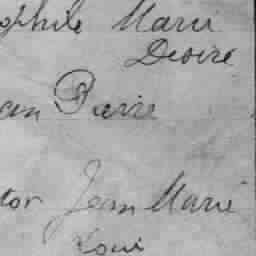 ophile Marie
Desire
ean Pierre
tor Jean Marie
Loui